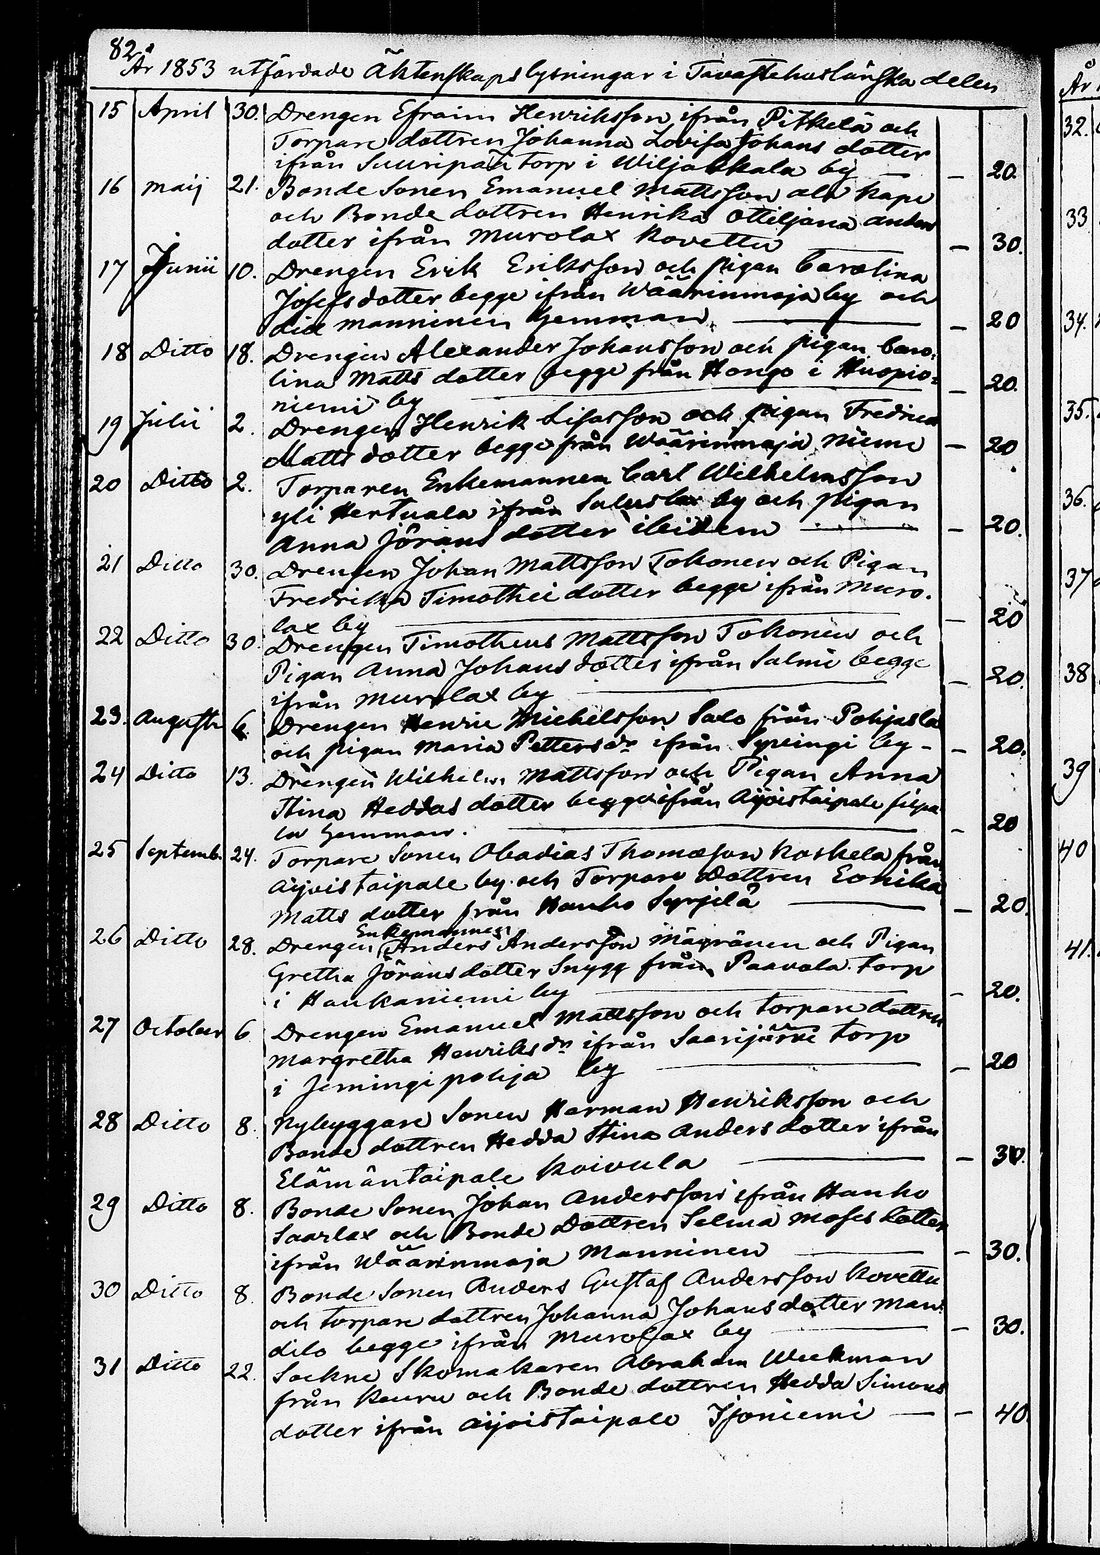 82
År 1853 utfärdade Äktenskapslysningar i Tavastehuslänska delen
15 April 30. Drengen Efraim Henriksson ifrån Pitkelä och
Torpare dottren Johanna Lovisa Johans dotter
ifrån Suuripää torp i Wiljaskala by — 20.
16 Maij 21. Bonde Sonen Emanuel Mattsson
och Bonde dottren Henrika Ottiljana anders
dotter ifrån Murolax Kovettu — 30.
17 Junii 10. Drengen Erik Eriksson och pigan Carolina
Josefsdotter begge ifrån Wäärinmaja by och
Manninen hemman. — 20
18 Ditto 18. Drengen Alexander Johansson och pigan Caro-
lina Matts dotter begge från Hongo i Kuopio- — 20.
niemi by
19 Julii 2. Drengen Henrik Lisasson och pigan Fredrica
Matts dotter begge från Wäärinmaja Niemi — 20
20 Ditto 2. Torparen Enkemannen Carl Wilhelmsson
yli Hertuala ifrån by och pigan
Anna Jörans dotter ibidem — 20.
21 Ditto 30. Drengen Johan Mattsson Tokonen och Pigan
Fredrika Timothei dotter begge ifrån Muro-
lax by — 20
22 Ditto 30. Drengen Timotheus Mattsson Tokonen och
Pigan Anna Johans dotter ifrån Salmi begge
ifrån Murolax by — 20.
23. Augusti 6. Drengen Henric Michelsson Salo från Pohjasla
och pigan Maria Pettersdr ifrån Syvingi by - — 20.
24 Ditto 13. Drengen Wilhelm Mattsson och Pigan Anna
Stina Heddas dotter begge ifrån Äijöistaipale Silpa
la hemman. — 20
25 Septemb. 24. Torpare Sonen Obadias Thomasson Koskela från
Äijöistaipale by och Torpare Dottren Eonika
Matts dotter från Hanho Syrjilä — 20.
Enkemannen
26 Ditto 28. Drengen Anders Andersson Mägränen och Pigan
Gretha Jöransdotter Snygg från Paavola torp
i Haukaniemi by — 20.
27 October 6 Drengen Emanuel Mattsson och torpare dottren
Margretha Henriksdr ifrån Saarijärvi torp
i Jemingipohja by — 20
28 Ditto 8. Nybyggare Sonen Herman Henriksson och
Bonde dottren Hedda Stina Anders dotter ifrån
Elämäntaipale Koivula — 30.
29 Ditto 8. Bonde Sonen Johan Andersson ifrån Hanho
Saarlax och Bonde Dottren Selma Moses dotter
ifrån Wäärinmaja Manninen — 30.
30 Ditto 8. Bonde Sonen Anders Gustaf Andersson Kovettu
och torpare dottren Johanna Johansdotter Man-
dilo begge ifrån Murolax by — 30.
31 Ditto 22. Sockne Skomakaren Abraham Weckman
från Keuru och Bonde dottren Hedda Simons
dotter ifrån Äijöistaipale Isoniemi — 40.
År
32.
33
34.
35.
36.
37
38
39
40
41.